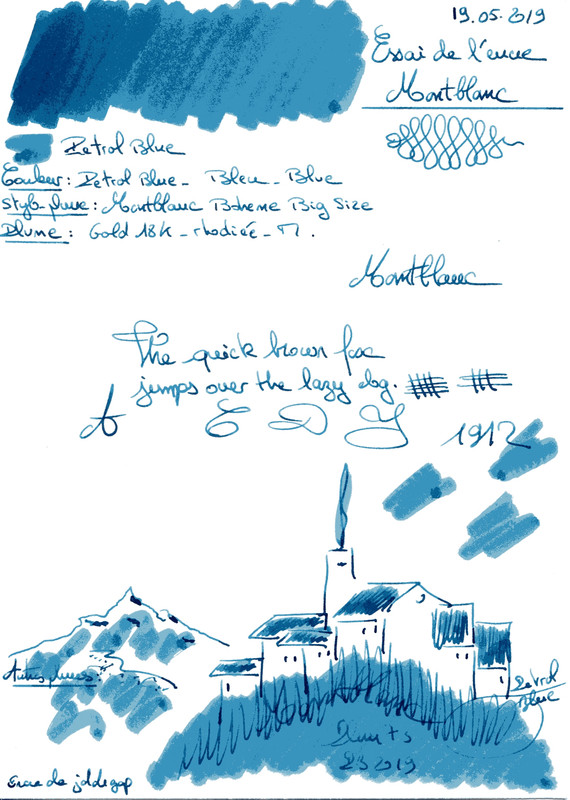 19.05.2019
Essai de l'encre
Montblanc
Petrol Blue
Couleur: Petrol Blue - Bleu - Blue
Stylo-plume: Montblanc Boheme Big Size
Plume: Gold 18K - rhodiée - M.
Montblanc
The quick brown fox
jumps over the lazy dog.
A E D J 1912
Autres plumes
Petrol
Blue
2019